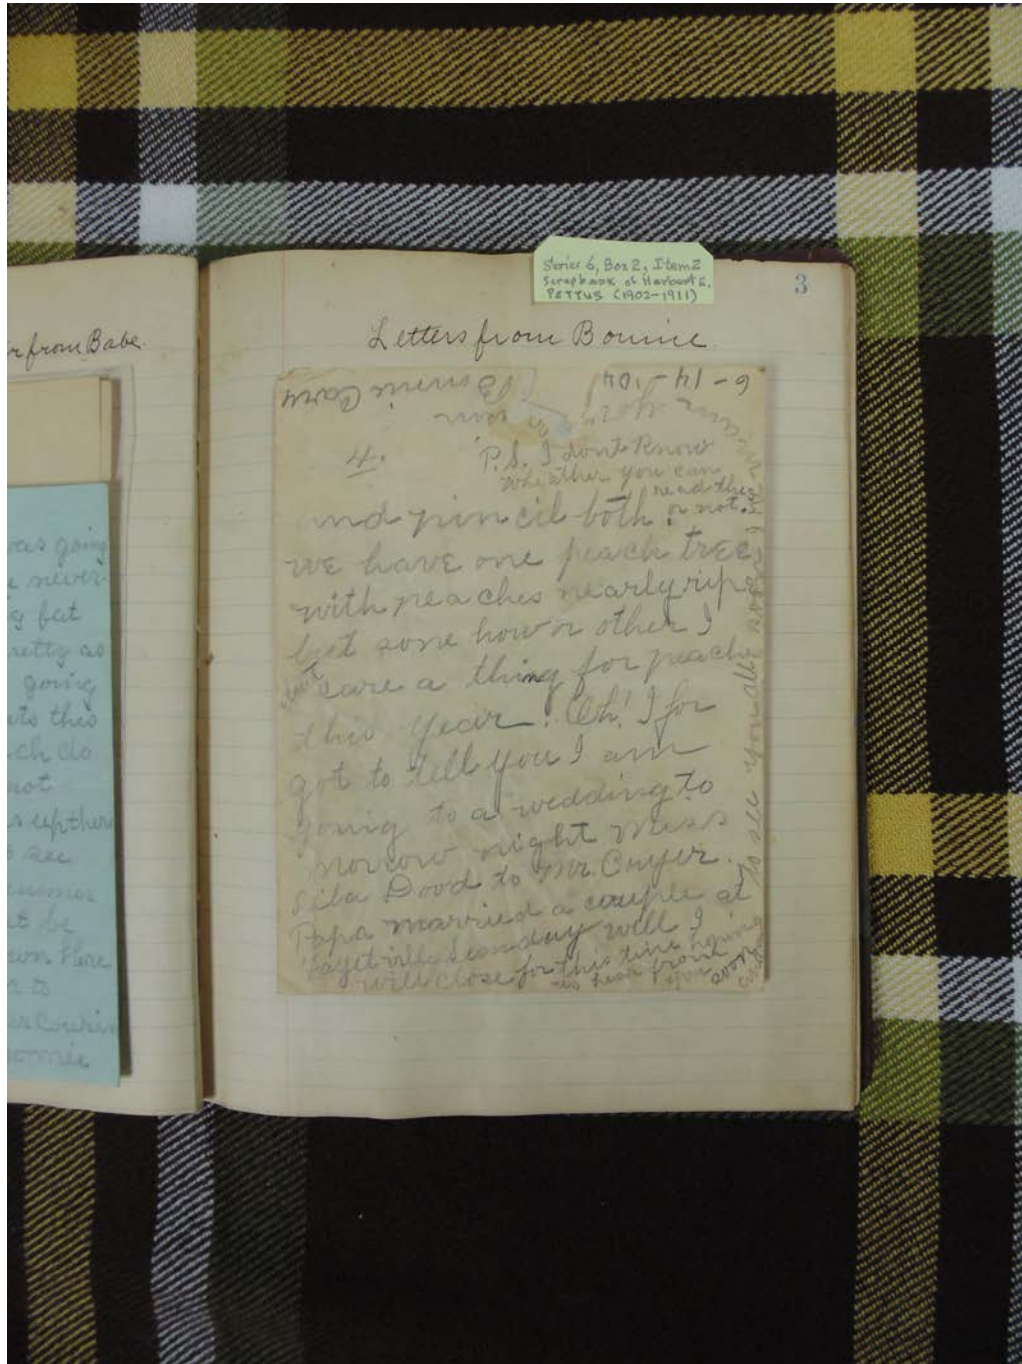 Series 6, Box 2, Item 2
Scrapbook of Harbert E.
PETTUS (1902-1911)
3
from Babe.
Letters from Bonnie.
was going
never
g fat
retty as
going
this
ch do
not
s upthere
see
be
own store
to
Cousin
Bonnie
6-14-'04
Bonnie
4.
P.S. I dont Know
wheather you can
read this
or not.
and pincil both.
we have one peach tree
with peaches nearly ripe
but some how or other I
dont care a thing for peach
this year. Oh! I for
got to tell you I am
going to a wedding to
morrow night Miss
Siba Dood to Mr. Cuyer.
Papa married a couple at
Fayetville Sunday well I
will close for this time hoping
to hear from
you soon
to see you all soon